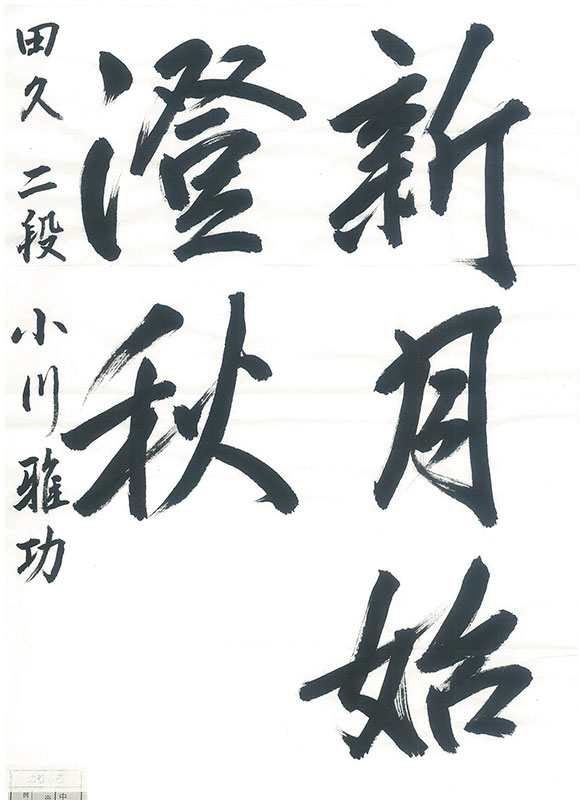 新月始
澄秋
田久 二段 小川雅功